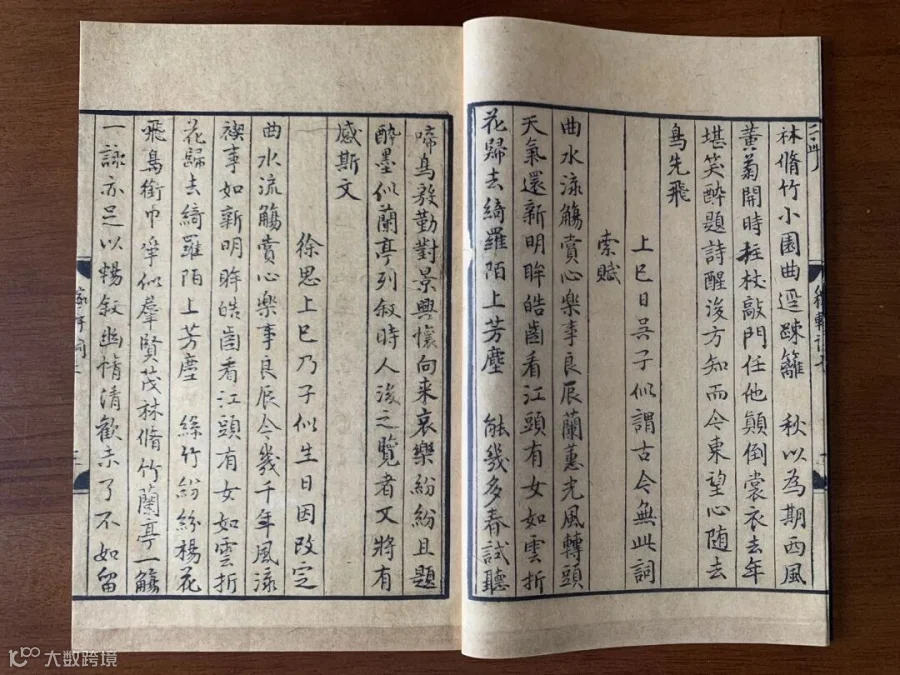 林脩竹小園曲逕踈籬　秋以為期西風
黄菊開時拄杖敲門任他顛倒裳衣去年
堪笑醉題詩醒後方知而今東望心随去
鳥先飛
上巳日吴子似謂古今無此詞
索賦
曲水流觴賞心樂事良辰蘭蕙光風轉頭
天氣還新明眸皓齒看江頭有女如雲折
花歸去綺羅陌上芳塵　能幾多春試聽
啼鳥殷勤對景興懷向来哀樂紛紛且題
酔墨似蘭亭列叙時人後之覽者又將有
感斯文
徐思上巳乃子似生日因改定
曲水流觴賞心樂事良辰今幾千年風流
禊事如新明眸皓齒看江頭有女如雲折
花歸去綺羅陌上芳塵　絲竹紛紛楊花
飛鳥銜巾争似羣賢茂林脩竹蘭亭一觴
一詠亦足以暢叙幽情清歡未了不如留
大数跨境